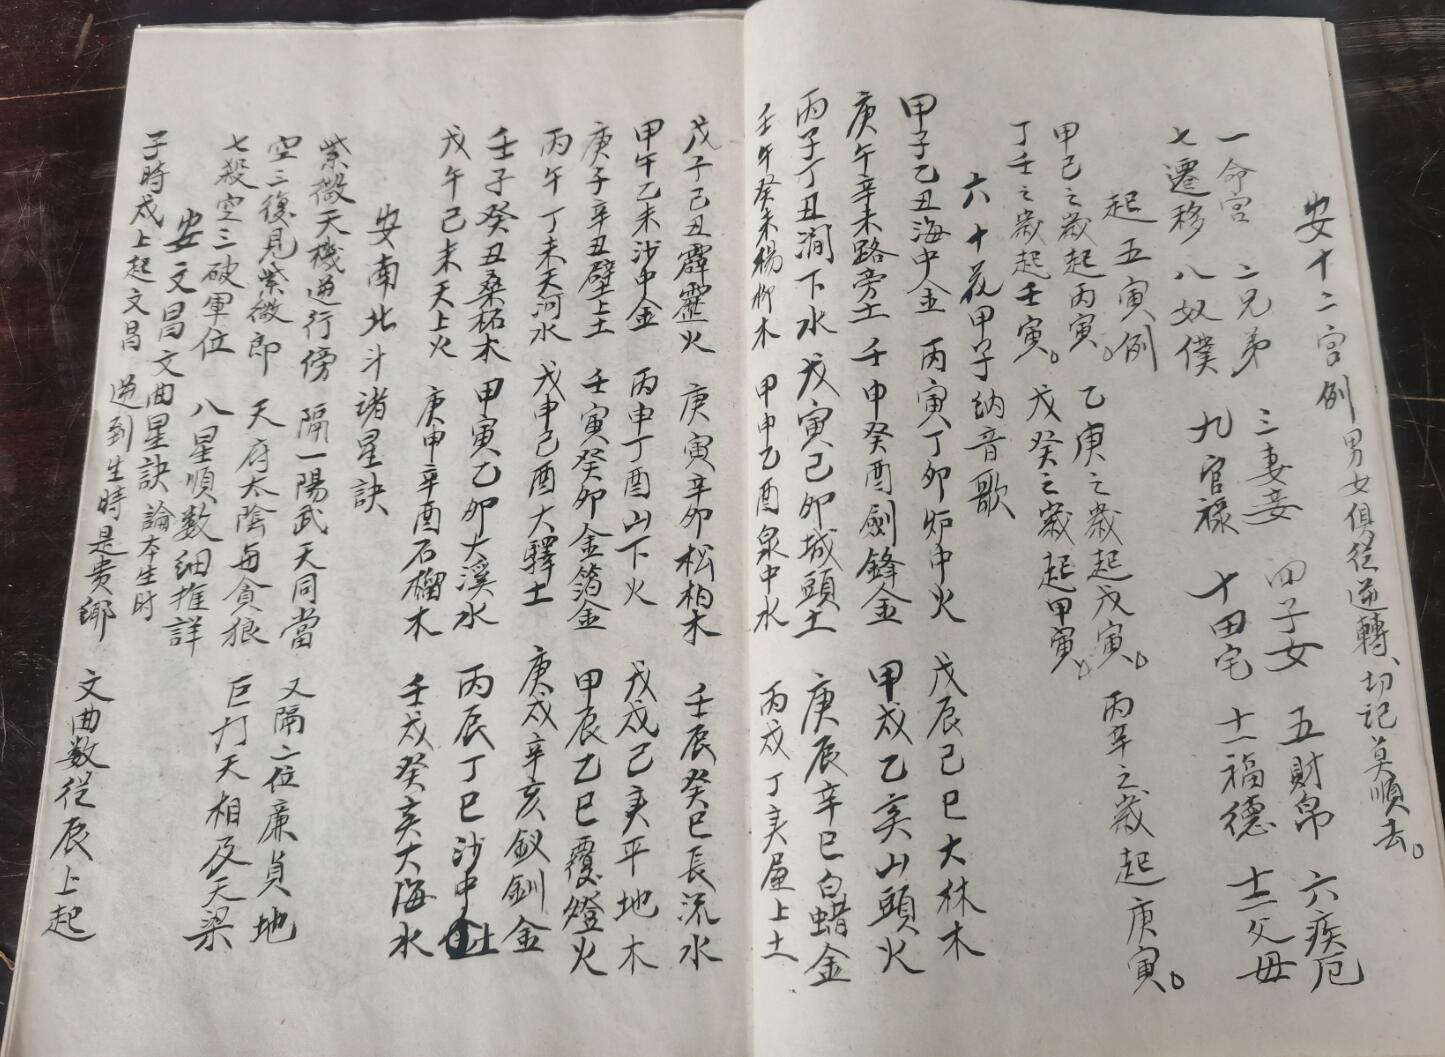 安十二宫例男女俱從逆轉切記莫順去。
一命宫 二兄弟 三妻妾 四子女 五財帛 六疾厄
七遷移 八奴僕 九官祿 十田宅 十一福德 十二父母
起五寅例
甲己之歲起丙寅。 乙庚之歲起戊寅。 丙辛之歲起庚寅。
丁壬之歲起壬寅。 戊癸之歲起甲寅。
六十花甲子納音歌
甲子乙丑海中金 丙寅丁卯炉中火 戊辰己巳大林木
庚午辛未路旁土 壬申癸酉劍鋒金 甲戌乙亥山頭火
丙子丁丑澗下水 戊寅己卯城頭土 庚辰辛巳白蜡金
壬午癸未楊柳木 甲申乙酉泉中水 丙戌丁亥屋上土
戊子己丑霹靂火 庚寅辛卯松柏木 壬辰癸巳長流水
甲午乙未沙中金 丙申丁酉山下火 戊戌己亥平地木
庚子辛丑壁上土 壬寅癸卯金箔金 甲辰乙巳覆燈火
丙午丁未天河水 戊申己酉大驛土 庚戌辛亥釵釧金
壬子癸丑桑柘木 甲寅乙卯大溪水 丙辰丁巳沙中土
戊午己未天上火 庚申辛酉石榴木 壬戌癸亥大海水
安南北斗諸星訣
紫微天機逆行傍 隔一陽武天同當 又隔二位廉貞地
空三復見紫微郎 天府太陰与貪狼 巨门天相及天梁
七殺空三破軍位 八星順数细推詳
安文昌文曲星訣論本生时
子時戌上起文昌 逆到生時是贵鄉 文曲数從辰上起